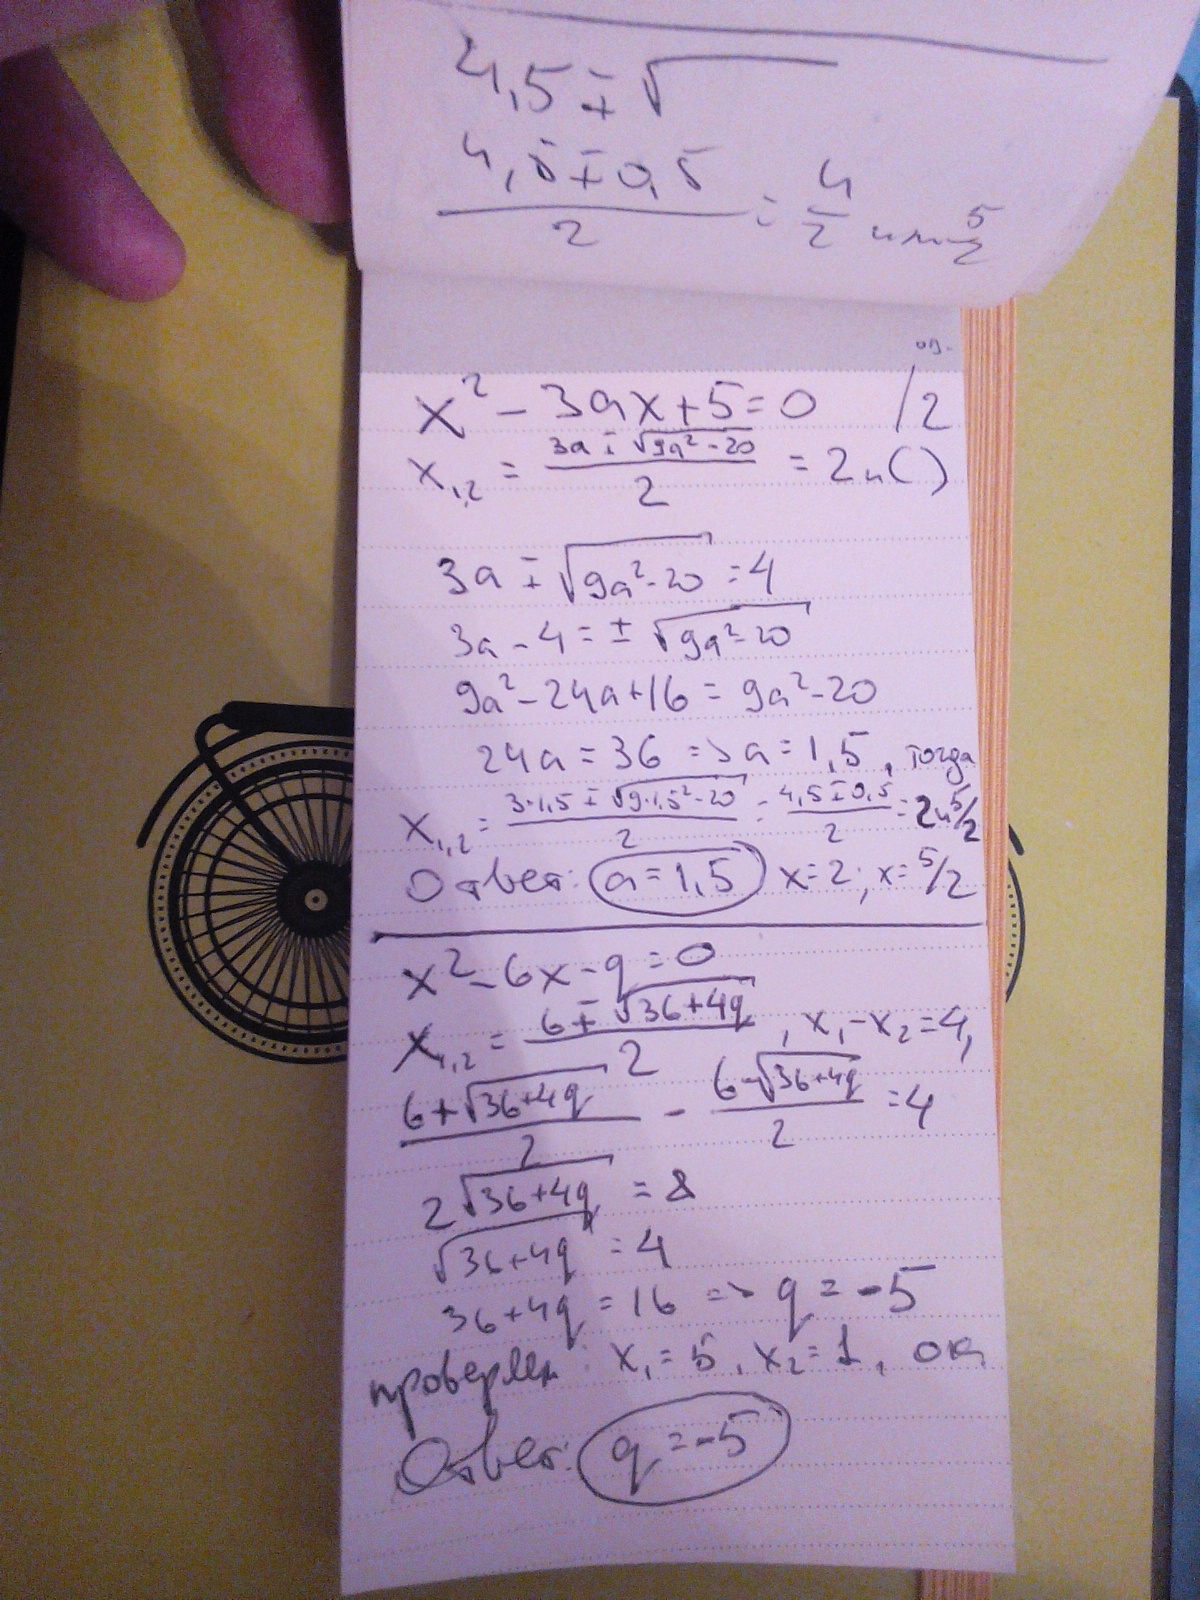 4,5 ∓ √
(4,5 ∓ 0,5)/2 = 4/2 или 5/2
x² - 3ax + 5 = 0 /2
x₁,₂ = (3a ∓ √(9a² - 20))/2 = 2 и ( )
3a ∓ √(9a² - 20) = 4
3a - 4 = ± √(9a² - 20)
9a² - 24a + 16 = 9a² - 20
24a = 36 => a = 1,5, тогда
x₁,₂ = (3·1,5 ∓ √(9·1,5² - 20))/2 = (4,5 ∓ 0,5)/2 = 2 и 5/2
Ответ: a = 1,5 x = 2; x = 5/2
x² - 6x - q = 0
x₁,₂ = (6 ∓ √(36 + 4q))/2, x₁ - x₂ = 4,
(6 + √(36 + 4q))/2 - (6 - √(36 + 4q))/2 = 4
2√(36 + 4q) = 8
√(36 + 4q) = 4
36 + 4q = 16 => q = -5
проверяем: x₁ = 5, x₂ = 1, ок
Ответ: q = -5